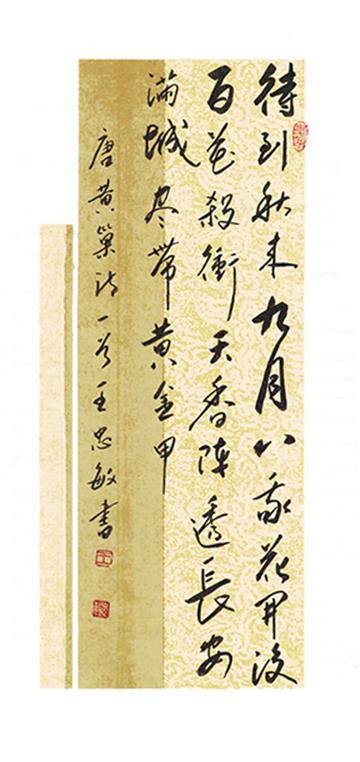 待到秋来九月八我花開後
百花殺衝天香陣透長安
滿城尽帶黄金甲
唐黄巢詩一首王忠敏書